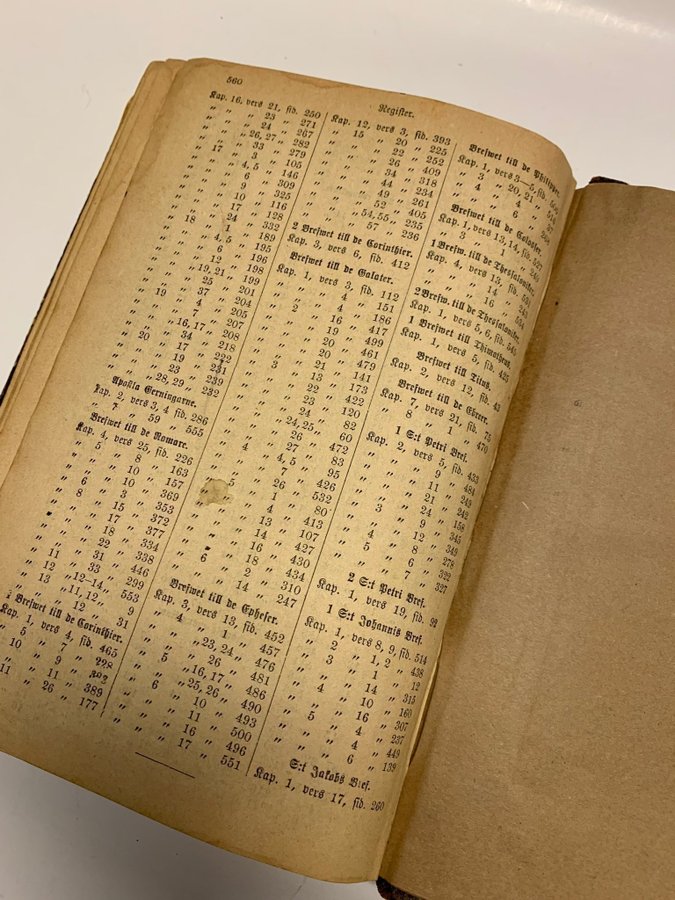 560
Register.
Kap. 16, vers 21, sid. 250
„ „ „ 23 „ 271
„ „ „ 24 „ 267
„ „ „ 26, 27 „ 282
„ „ „ 33 „ 279
„ 17 „ 3 „ 105
„ „ „ 4, 5 „ 146
„ „ „ 6 „ 309
„ „ „ 9 „ 325
„ „ „ 10 „ 116
„ „ „ 17 „ 128
„ „ „ 24 „ 332
„ 18 „ 1 „ 189
„ „ „ 4, 5 „ 195
„ „ „ 6 „ 196
„ „ „ 12 „ 198
„ „ „ 19, 21 „ 199
„ „ „ 25 „ 201
„ „ „ 37 „ 204
„ 19 „ 4 „ 205
„ „ „ 7 „ 207
„ „ „ 16, 17 „ 208
„ „ „ 34 „ 218
„ 20 „ 17 „ 222
„ „ „ 19 „ 231
„ „ „ 23 „ 239
„ „ „ 28, 29 „ 232
Apostla Gerningarne.
Kap. 2, vers 3, 4 sid. 286
„ 7 „ 59 „ 555
Brefwet till de Romare.
Kap. 4, vers 25, sid. 226
„ 5 „ 8 „ 163
„ „ „ 10 „ 157
„ 6 „ 10 „ 369
„ 8 „ 3 „ 353
„ „ „ 15 „ 372
„ „ „ 17 „ 377
„ „ „ 18 „ 334
„ „ „ 22 „ 338
„ „ „ 31 „ 446
„ 11 „ 33 „ 299
„ 12 „ 12–14 „ 553
„ 13 „ 11, 12 „ 9
„ „ „ 12 „ 31
1 Brefwet till de Corinthier.
Kap. 1, vers 4, sid. 465
„ 5 „ 7 „ 228
10 „ 9 „ 303
„ „ 11 „ 389
11 „ 26 „ 177
Kap. 12, vers 3, sid. 393
„ 15 „ 20 „ 225
„ „ „ 22 „ 252
„ „ „ 26 „ 409
„ „ „ 34 „ 318
„ „ „ 44 „ 234
„ „ „ 49 „ 261
„ „ „ 52 „ 405
„ „ „ 54, 55 „ 235
„ „ „ 57 „ 236
2 Brefwet till de Corinthier.
Kap. 3, vers 6, sid. 412
Brefwet till de Galater.
Kap. 1, vers 3, sid. 112
„ „ „ 4 „ 151
„ 2 „ 4 „ 186
„ „ „ 16 „ 417
„ „ „ 19 „ 499
„ „ „ 20 „ 461
„ „ „ 20 „ 479
„ „ „ 21 „ 141
„ 3 „ 13 „ 173
„ „ „ 22 „ 422
„ „ „ 23 „ 120
„ „ „ 24 „ 82
„ „ „ 24, 25 „ 60
„ „ „ 26 „ 472
„ „ „ 27 „ 83
„ 4 „ 4, 5 „ 95
„ „ „ 7 „ 426
„ „ „ 26 „ 532
„ 5 „ 1 „ 80
„ „ „ 4 „ 413
„ „ „ 13 „ 107
„ „ „ 14 „ 427
„ „ „ 16 „ 430
„ „ „ 18 „ 434
„ 6 „ 2 „ 310
„ „ „ 14 „ 247
Brefwet till de Epheser.
Kap. 3, vers 13, sid. 452
„ 4 „ 1 „ 457
„ „ „ 23, 24 „ 476
„ „ „ 26 „ 481
„ 5 „ 16, 17 „ 486
„ „ „ 25, 26 „ 490
„ 6 „ 10 „ 493
„ „ „ 11 „ 500
„ „ „ 16 „ 496
„ „ „ 17 „ 551
Brefwet till de Philipper.
Kap. 1, vers 3—6, sid.
„ 3 „ 20, 21 „
„ 4 „ 4 „
„ „ „ 6 „
Brefwet till de Colosser.
Kap. 1, vers 13, 14, sid. 527
„ 3 „ 1 „ 246
1 Brefw. till de Thessaloniker.
Kap. 4, vers 13, sid. 531
„ „ „ 14 „ 243
„ „ „ 16 „ 534
2 Brefw. till de Thessaloniker.
Kap. 1, vers 5, 6, sid. 545
1 Brefwet till Thimotheus.
Kap. 1, vers 5, sid. 425
Brefwet till Titus.
Kap. 2, vers 12, sid. 43
Brefwet till de Ebreer.
Kap. 7, vers 21, sid. 75
„ 8 „ 1 „ 470
1 S:t Petri Bref.
Kap. 2, vers 5, sid. 433
„ „ „ 9 „ 484
„ „ „ 11 „ 249
„ „ „ 21 „ 242
„ „ „ 24 „ 158
„ 3 „ 9 „ 345
„ „ „ 12 „ 349
„ 4 „ 8 „ 278
„ 5 „ 6 „ 322
„ „ „ 7 „ 327
2 S:t Petri Bref.
Kap. 1, vers 19, sid. 92
1 S:t Johannis Bref.
Kap. 1, vers 8, 9, sid. 514
„ 2 „ 1, 2 „ 438
„ 3 „ 1 „ 12
„ „ „ 14 „ 315
„ 4 „ 10 „ 160
„ „ „ 16 „ 307
„ 5 „ 4 „ 237
„ „ „ 4 „ 449
„ „ „ 6 „ 139
S:t Jakobs Bref.
Kap. 1, vers 17, sid. 260